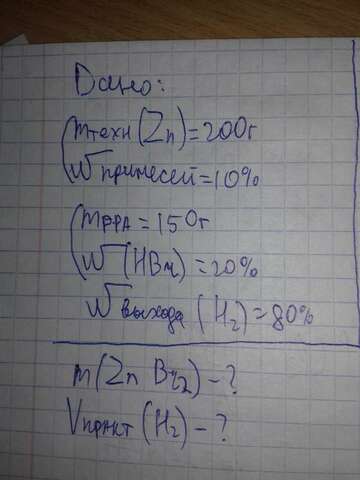 Дано:
mтехн(Zn)=200г
Wпримесей=10%
mрра=150г
W(HBr)=20%
Wвыхода(H₂)=80%
m(ZnBr₂)-?
Vпракт(H₂)-?